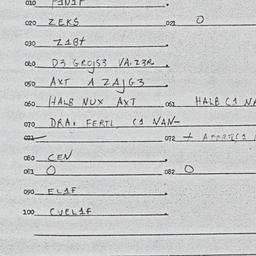 010
020 ZEKS 021 O
030 ZIBT
040 D3 GROJS3 VA.Z3R
050 AXT A ZAJG3
060 HALB NUX AXT 061 HALB C1 NA
070 DRAI FERTL C1 NAN-
071 072
080 CEN
081 O 082 O
090 ELAF
100 CVELAF